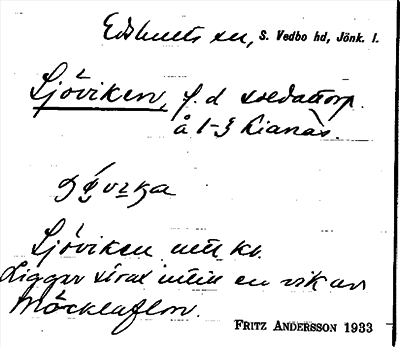 Edshults sn, S. Vedbo hd, Jönk. l.
Sjöviken, f. d. soldattorp.
å 1-3 Kianäs.
Sjöviken utt. kr.
Ligger strax intill en vik av
Möcklaflon.
FRITZ ANDERSSON 1933